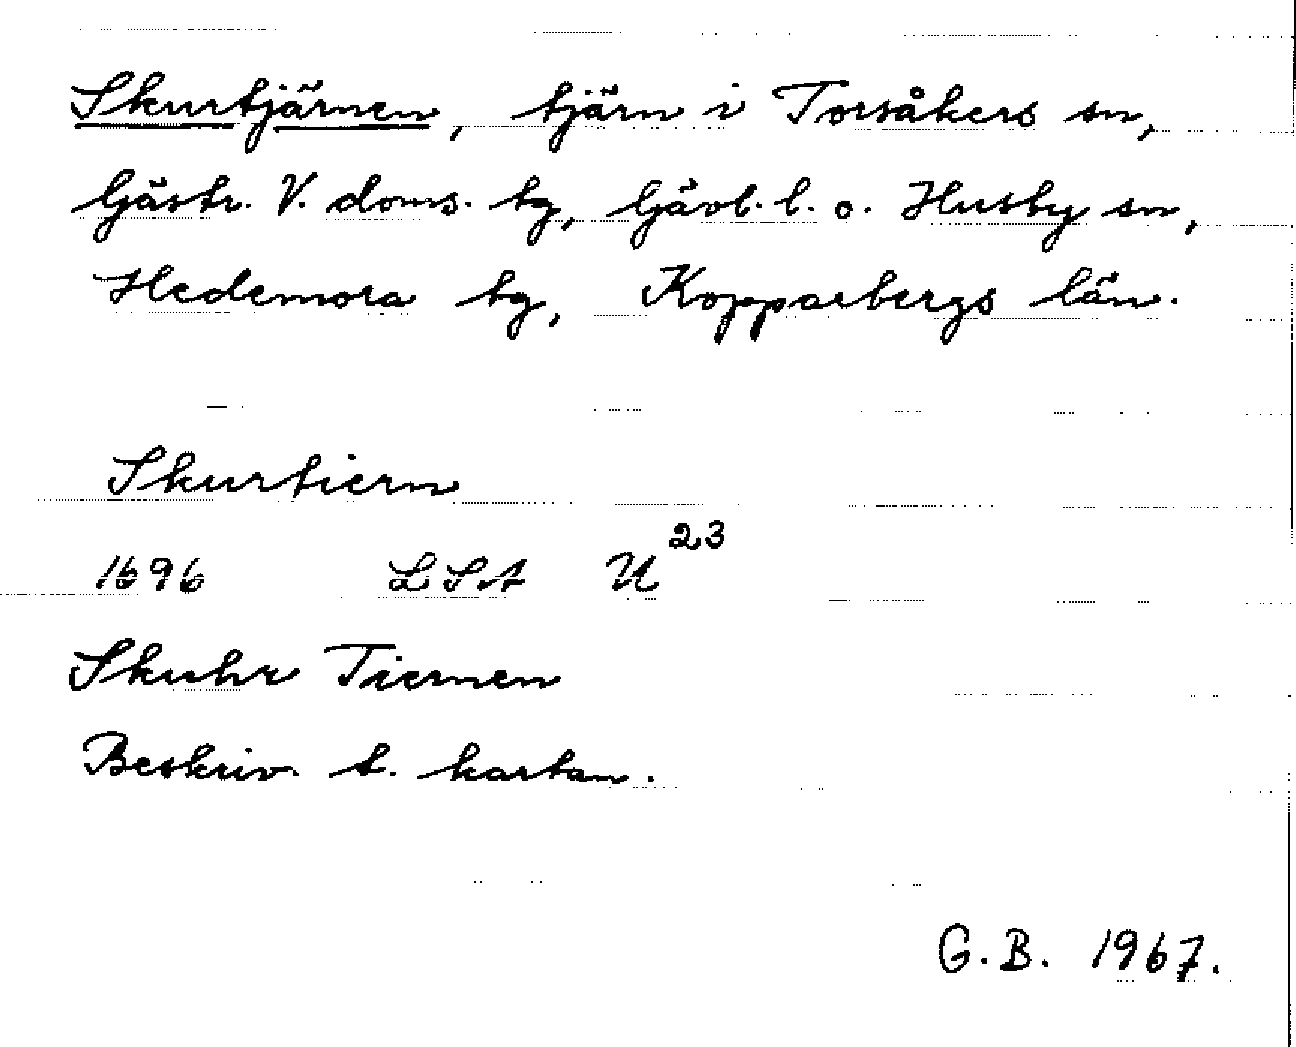 Skurtjärnen, tjärn i Torsåkers sn,
Gästr. V. doms. tg, Gävl. l. o. Husby sn,
Hedemora tg, Kopparbergs län.
Skurtiern
1696 LSA U²³
Skuhr Tiernen
Beskriv. t. kartan.
G.B. 1967.